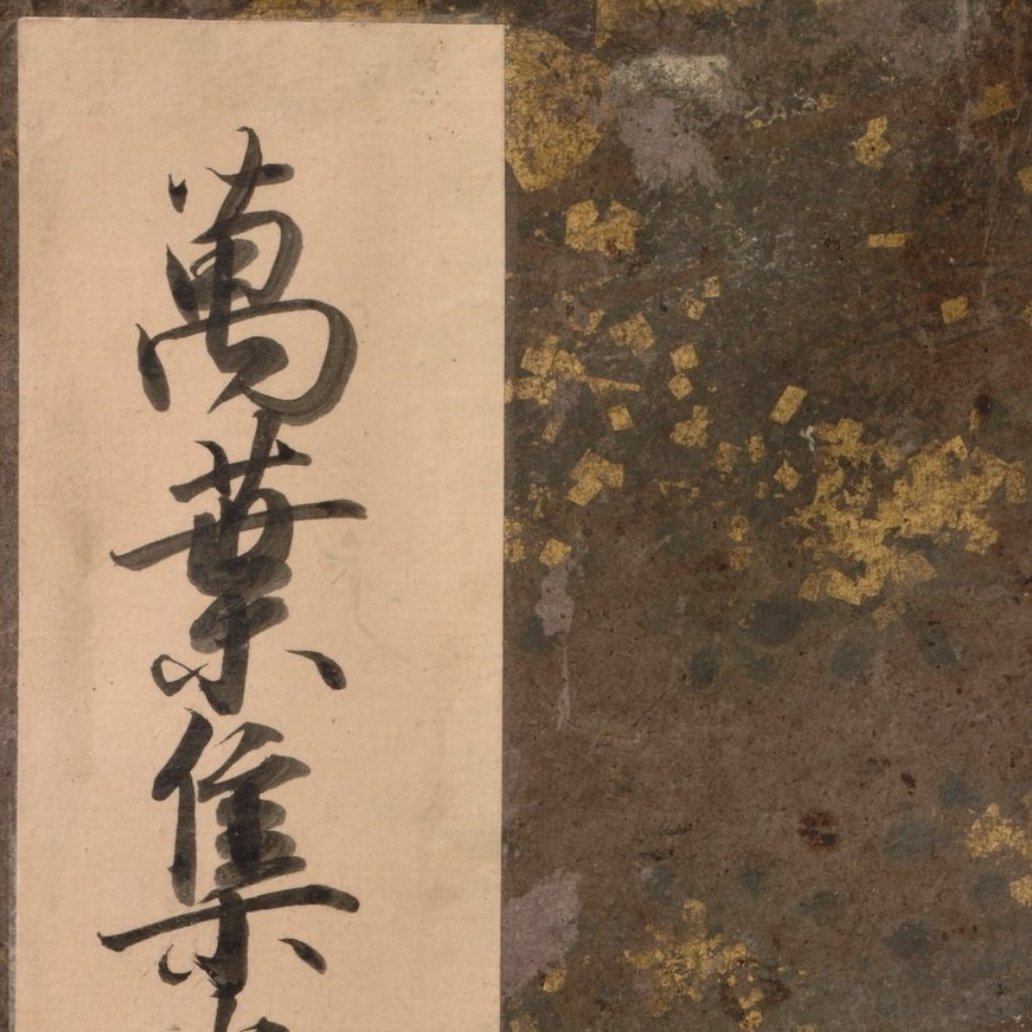 萬葉集